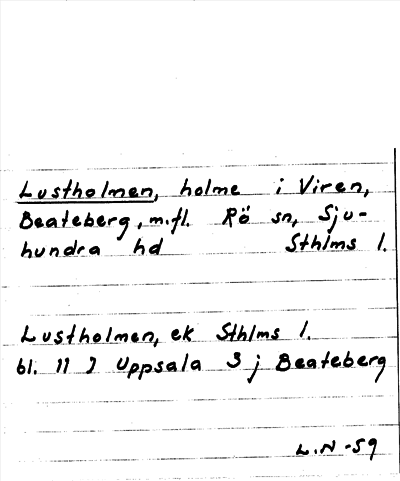 Lustholmen, holme i Viren,
Beateberg, m.fl. Rö sn, Sju-
hundra hd Sthlms l.
Lustholmen, ek Sthlms l.
bl. 11 I Uppsala 3 j Beateberg
L.N -59